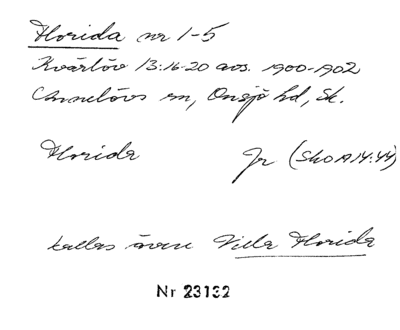 Florida nr 1-5
Kvärlöv 13:16-20 avs. 1900-1902
Annelövs sn, Onsjö hd, Sk.
Florida Jr (SkO A 14:44)
kallas även Villa Florida
Nr 23132